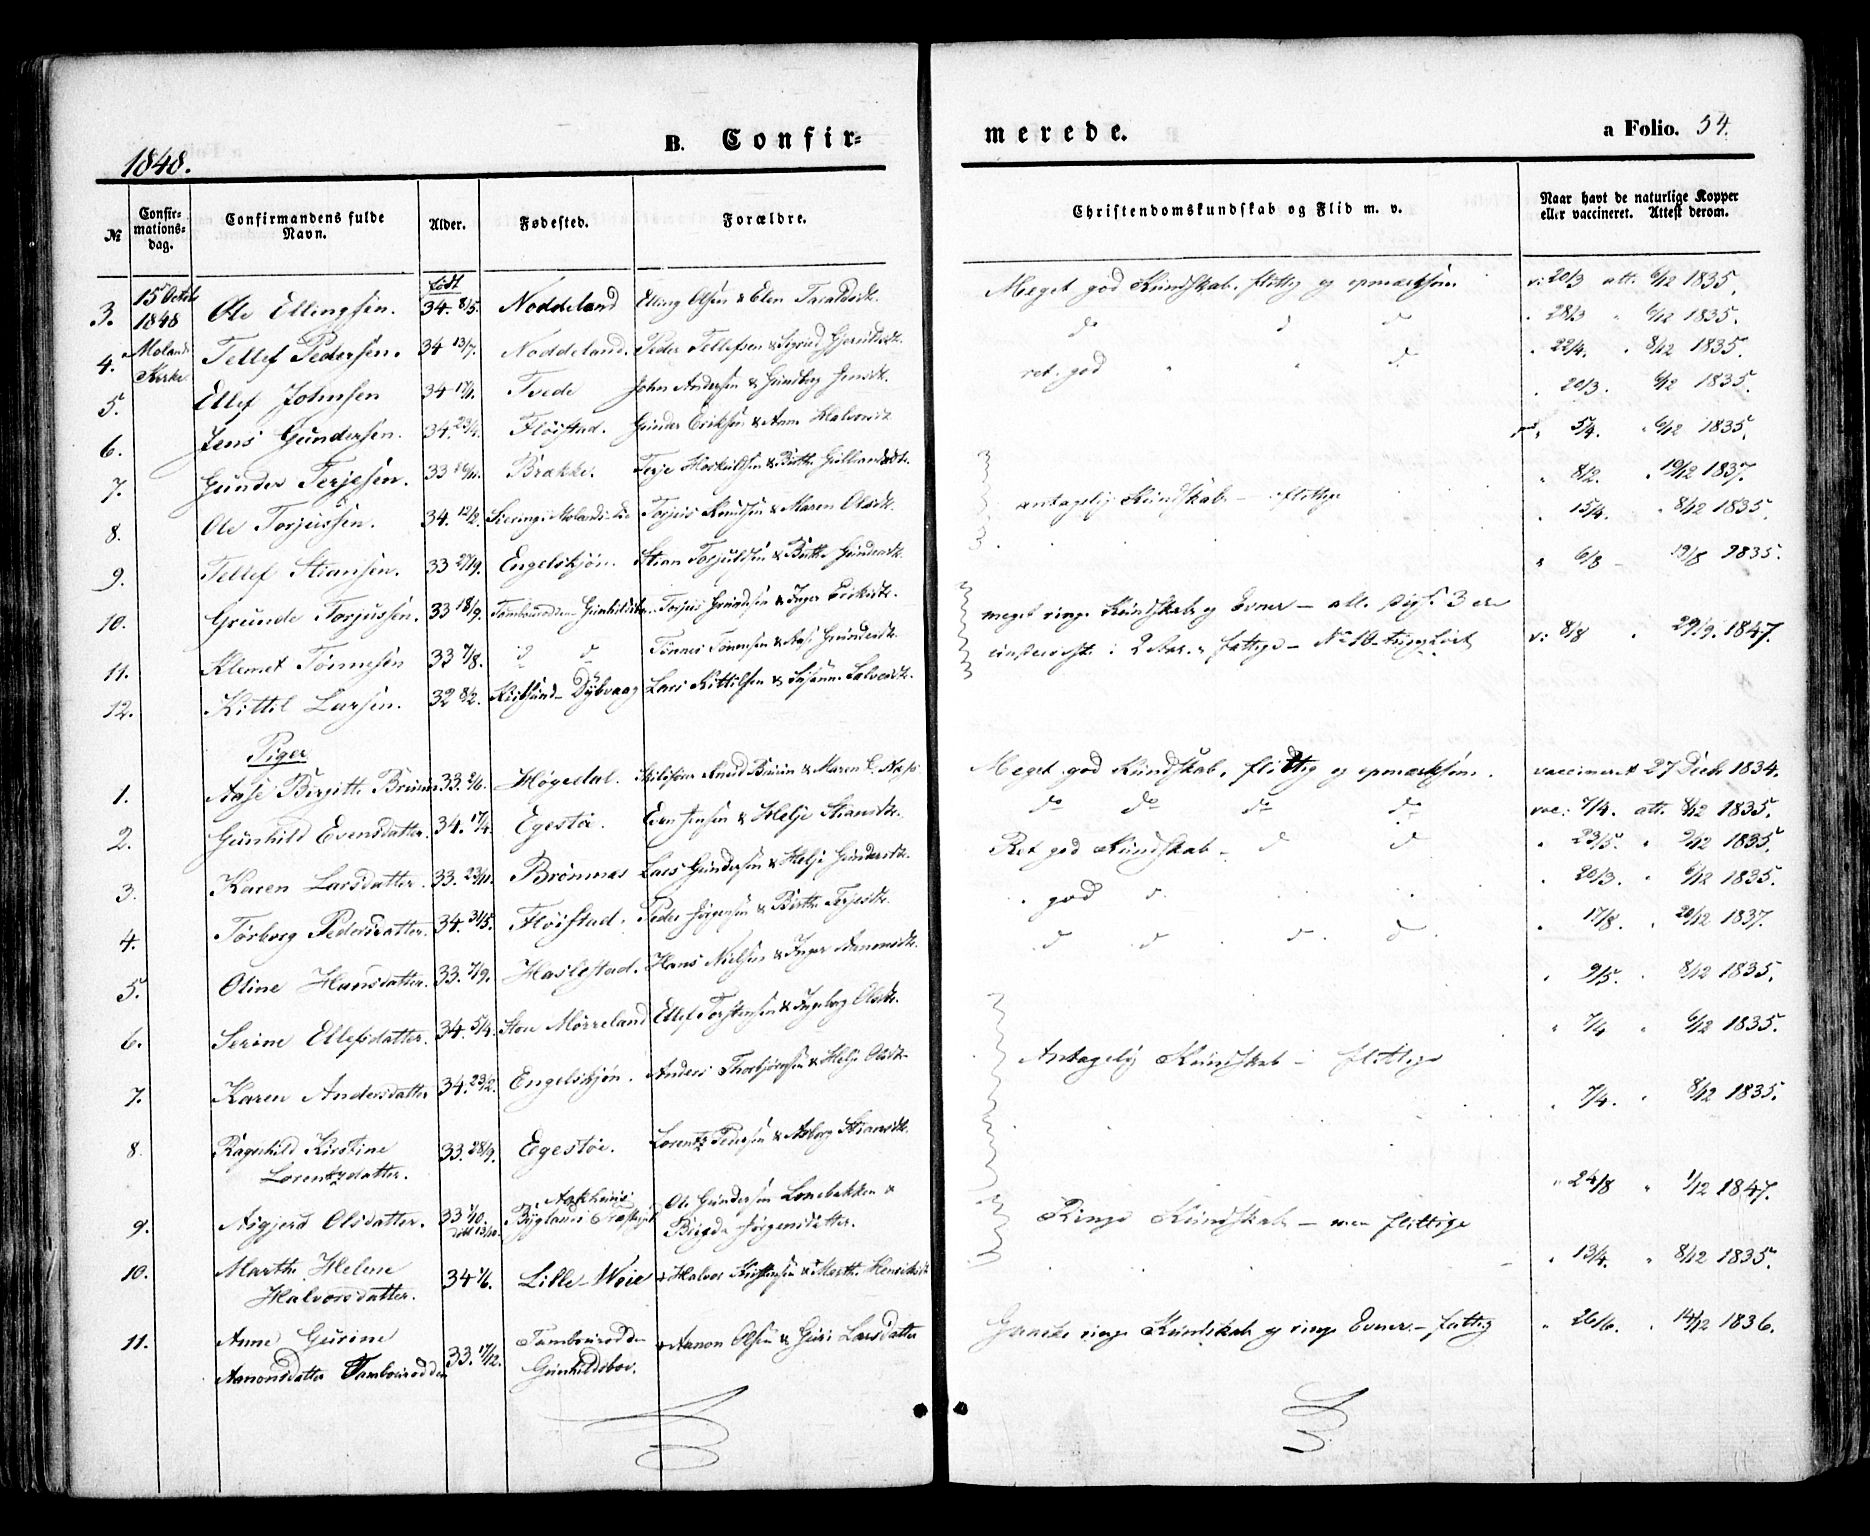 1848.
B. Confir-
merede.
a Folio. 54.
№
Confir-
mations-
dag.
Confirmandens fulde
Navn.
Alder.
Fødested.
Forældre.
Christendomskundskab og Flid m. v.
Naar havt de naturlige Kopper
eller vaccineret. Attest derom.
født
15 Octob 1848 Molands Kirke
3. Ole Ellingsen. 34. 8/5. Noddeland Elling Olsen & Elen Taraldsdtr. Meget god Kundskab, flittig og opmærksom. v: 20/3 att. 6/12 1835.
4. Tellef Pedersen. 34 13/7. Noddeland. Peder Tellefsen & Sigrid do d do " 28/3 " 6/12 1835.
5. Ellef Johnsen 34 Tvede John Andersen & Gundborg Jensdtr. ret god " " d " 22/4. " 8/12 1835.
6. Jens Gundersen. 34. 23/4. Fløistad. Gunder Eriksen & Anne Halvorsdtr. " 20/3. 6/12 1835.
7. Gunder Terjesen. 33 Brække. Terje & Birthe " 5/4. " 6/12 1835.
8. Ole Torjussen. 34. 12/2. Torjus Knudsen & Maren Olsdtr. antagelig Kundskab – flittige " 8/2. " 19/12 1837.
9. Tellef Stiansen. 33 27/9. Engelskjøn. Stian Torjuldsen & Birthe Gundersdtr. " 15/4. " 8/12 1835.
10. Grunde Torjussen. 33 18/9. Torjus Grundesen & Inger Eriksdtr. meget ringe Kundskab og Evner – alle disse 3 ere " 6/8 – 19/8 1835.
11. Klemet Tønnesen 33 7/8. d d Tønnes Tønnesen & Aase Gundersdtr. i 2 Aar. – flittige – No 10 tunghørt
12. Kittil Larsen. 32 8/2. Dybvaag Lars Kittilsen & Susanne Salvesdtr. v: 8/8 " 29/9. 1847.
Piger
1. Aase Birgitte Bruun 33. 2/6. Høgedal. Knud Bruun & Maren Meget god Kundskab, flittig og opmærksom. vaccineret 27 Decb 1834.
2. Gunhild Evensdatter. 34. 17/4. Egestøe. Even Jensen & Helje Stiansdtr. do do do do vac: 7/4. att. 8/12 1835.
3. Karen Larsdatter. 33. 23/11. Brømnes Lars Gundersen & Helje Gundersdtr. Ret god Kundskab – d d " 23/5. " 9/12 1835.
4. Torborg Pedersdatter. 34. 31/5. Fløistad. Peder Jørgensen & Birthe Terjesdtr. " god d. " 20/3. " 6/12 1835.
5. Oline Hansdatter. 33. 7/9. Haslestad. Hans Nielsen & Inger Aanonsdtr. d d d d " 17/8. " 20/12 1837.
6. Serine Ellefsdatter. 34. 5/4. Store Mørreland Ellef Torstensen & Ingeborg Olsdtr. " 9/5. " 8/12 1835.
7. Karen Andersdatter 34. 23/2. Engelskjøn. Anders Thorbjørnsen & Helje Olsdtr. Antagelig Kundskab – flittige " 7/4 " 6/12 1835.
8. Ragnhild Kirstine
Lorentzdatter. 33. 28/9. Egestøe. Lorentz Pedersen & Asborg Stiansdtr. " 7/4. " 8/12 1835.
9. Asgjerd Olsdatter. 33 Byglands Præstegjeld Ole Gundersen Lonebakken &
Birgite Jørgensdatter. Ringe Kundskab – men flittige " 24/8 " 1/12 1847.
10. Marthe Helene
Halvorsdatter. 34 1/6. Lille-Vøie + Halvor Kristensen & Marthe Henriksdtr. " 13/4. " 8/12 1835.
11. Anne Gurine
Aanonsdatter Tambourodden 33. 17/12. Tambourodden
Gunhildsboe. + Aanon Olsen & Guri Larsdatter Ganske ringe Kundskab og ringe Evner – flittig " 26/6. " 14/12 1836.